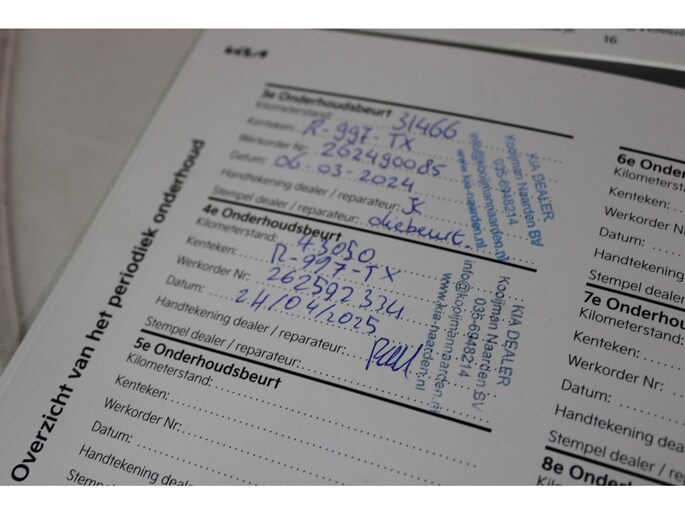 16
KIA
Overzicht van het periodiek onderhoud
3e Onderhoudsbeurt
Kilometerstand: 31466
Kenteken: R-997-TX
Werkorder Nr: 262490085
Datum: 06-03-2024
Handtekening dealer / reparateur:
Stempel dealer / reparateur: oliebeurt.
KIA DEALER
Kooijman Naarden BV
035-6948214
info@kooijmannaarden.nl
www.kia-naarden.nl
4e Onderhoudsbeurt
Kilometerstand: 43050
Kenteken: R-997-TX
Werkorder Nr: 262592334
Datum: 24/04/2025
Handtekening dealer / reparateur:
Stempel dealer / reparateur:
KIA DEALER
Kooijman Naarden BV
035-6948214
info@kooijmannaarden.nl
www.kia-naarden.nl
5e Onderhoudsbeurt
Kilometerstand:
Kenteken:
Werkorder Nr:
Datum:
Handtekening dealer / reparateur:
Stempel
6e Onder
Kilometerstand:
Kenteken:
Werkorder Nr:
Datum:
Handtekening dealer
Stempel dealer / r
7e Onderho
Kilometerstand:
Kenteken:
Werkorder Nr:
Datum:
Handtekening dealer /
Stempel dealer / repa
8e Onderhoud
Kilometerstand:
Kenteken: